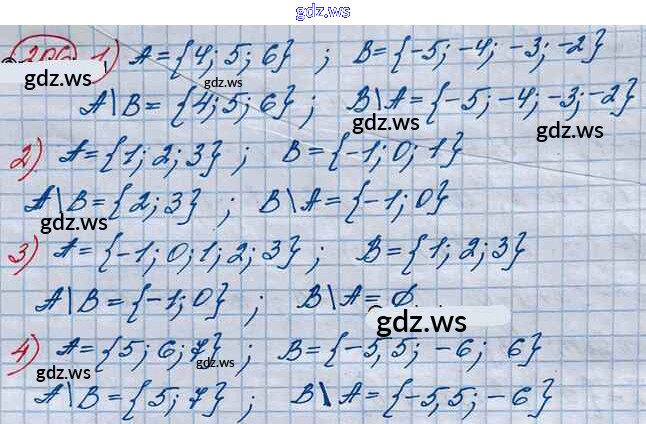 gdz.ws
gdz.ws
306 1) A = {4; 5; 6} ; B = {-5; -4; -3; -2}
gdz.ws
A\B = {4; 5; 6} ; B\A = {-5; -4; -3; -2}
gdz.ws gdz.ws
2) A = {1; 2; 3} ; B = {-1; 0; 1}
A\B = {2; 3} ; B\A = {-1; 0}
gdz.ws
3) A = {-1; 0; 1; 2; 3} ; B = {1; 2; 3}
A\B = {-1; 0} ; B\A = ∅.
gdz.ws
4) A = {5; 6; 7} ; B = {-5,5; -6; 6}
gdz.ws gdz.ws
A\B = {5; 7} ; B\A = {-5,5; -6}
gdz.ws